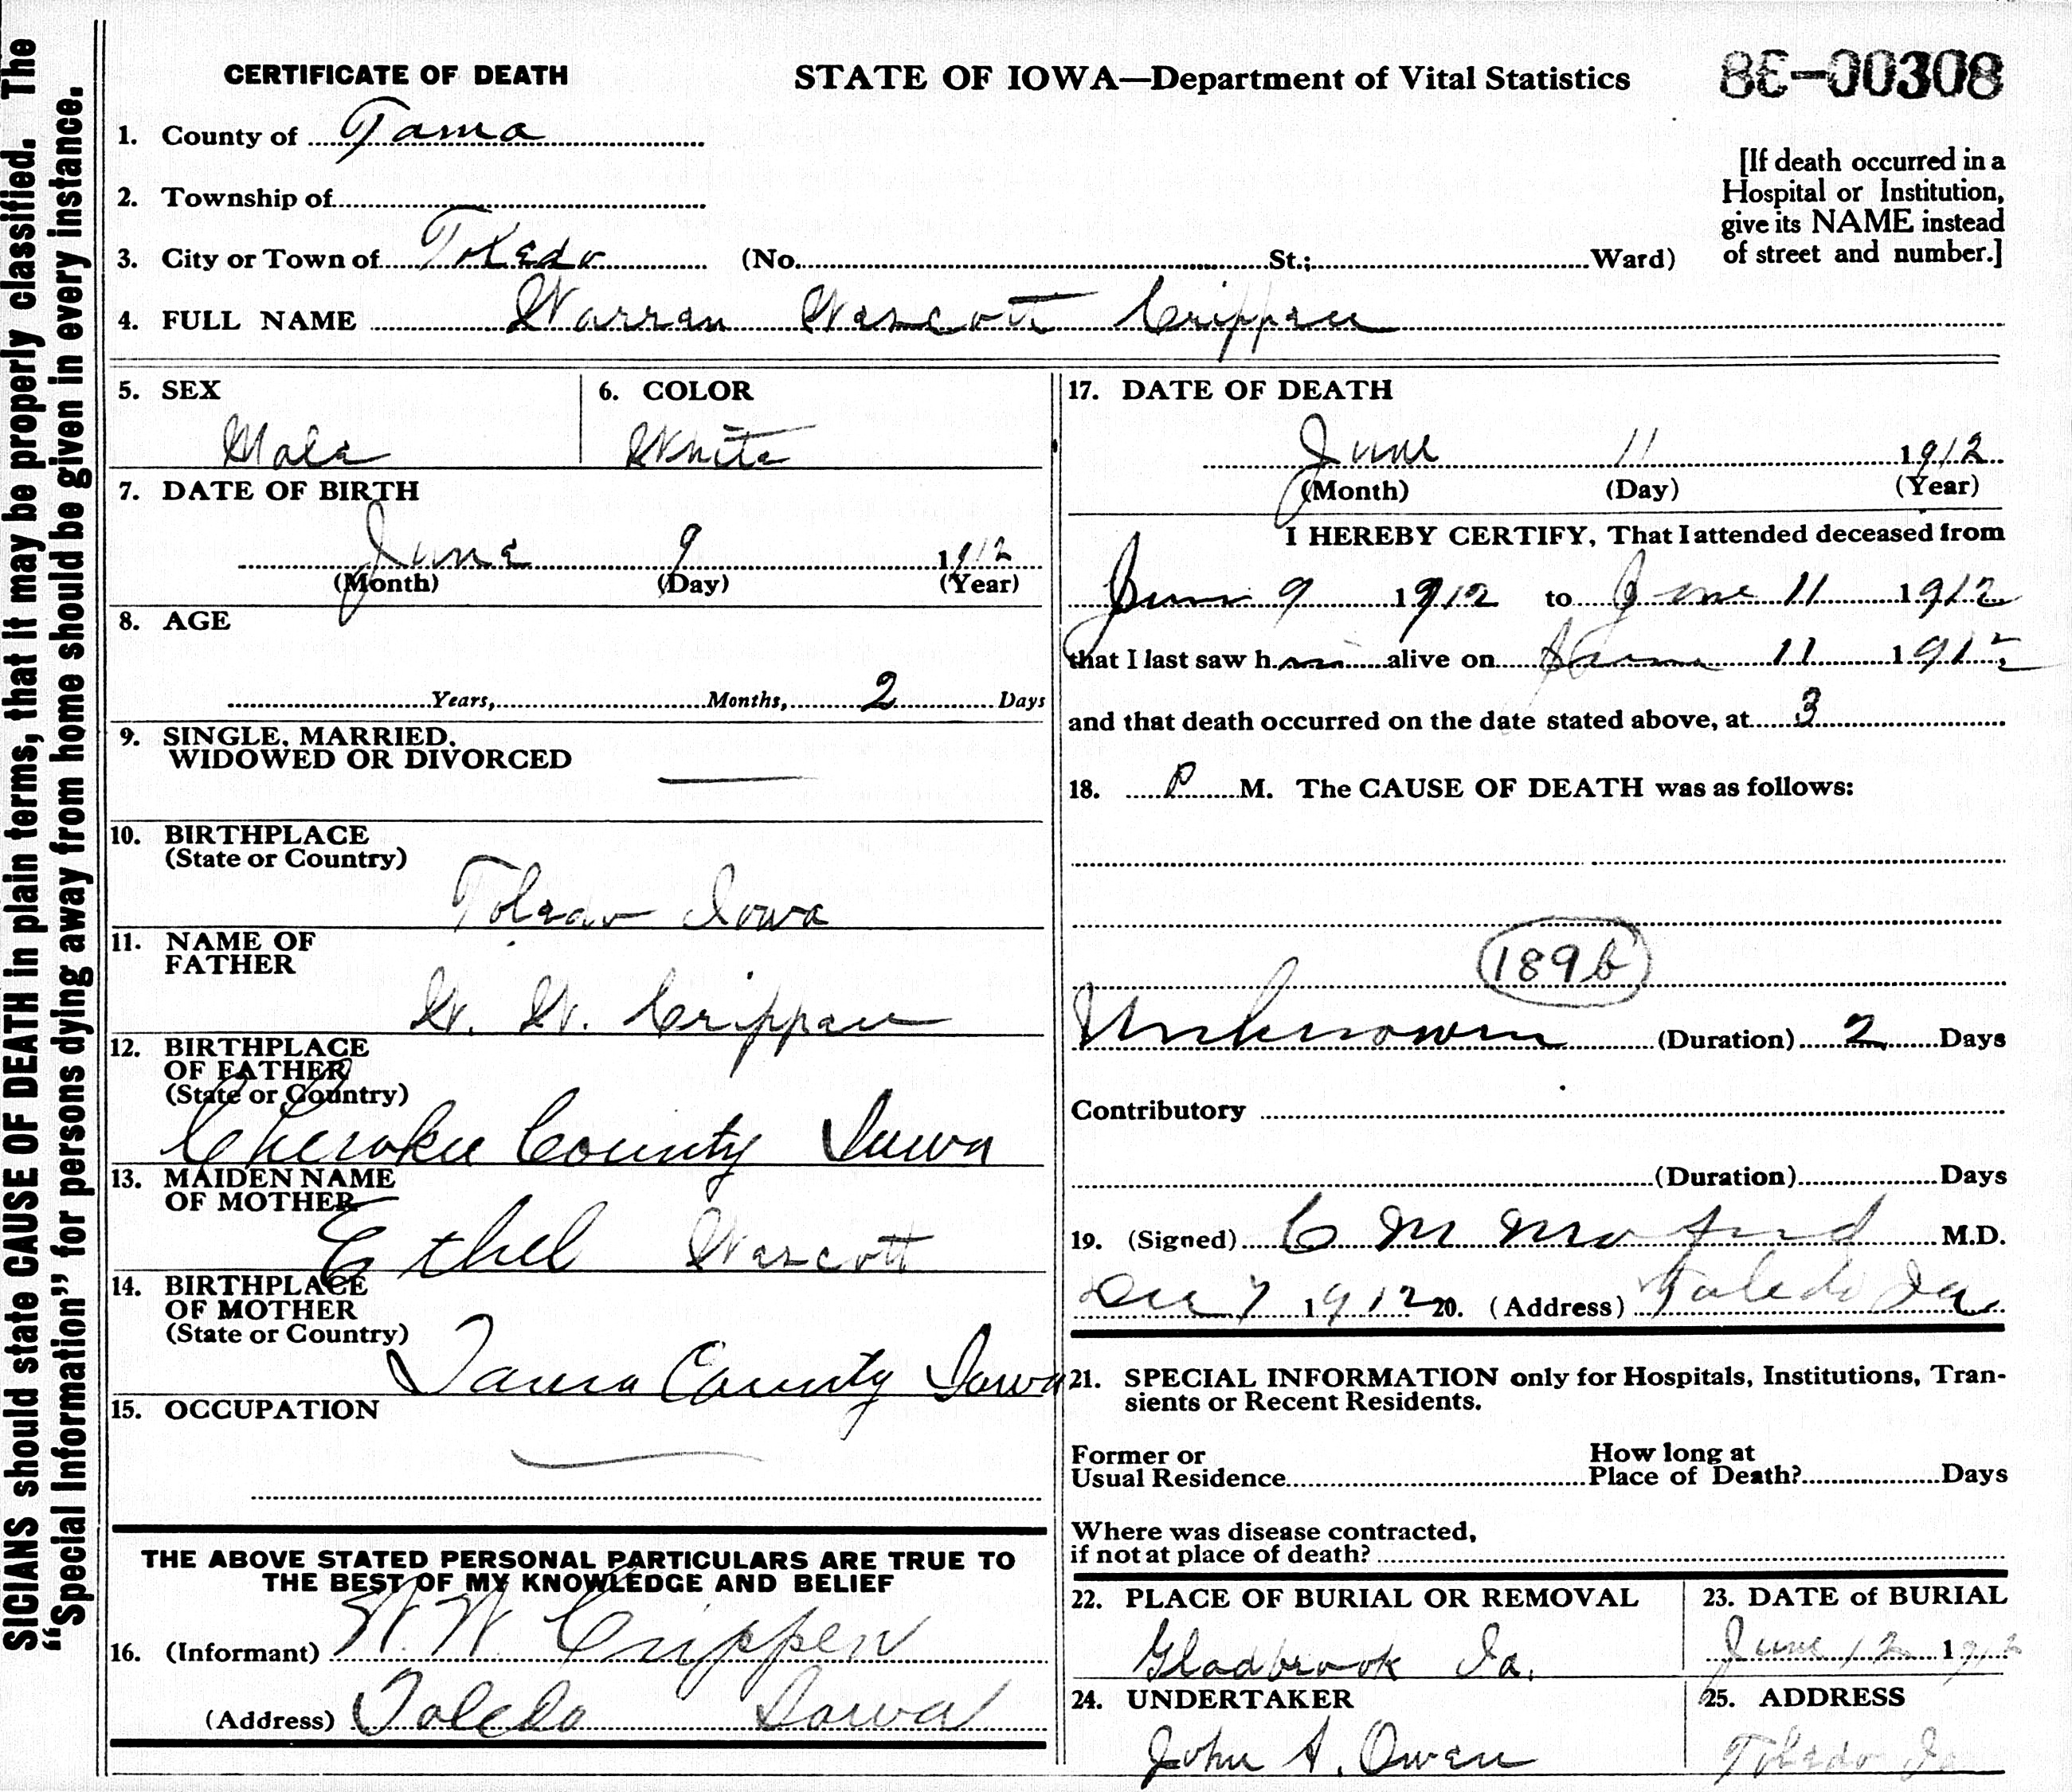 SICIANS should state CAUSE OF DEATH in plain terms, that it may be properly classified. The
"Special Information" for persons dying away from home should be given in every instance.
CERTIFICATE OF DEATH
STATE OF IOWA—Department of Vital Statistics
86-00308
1. County of Tama
2. Township of
3. City or Town of Toledo (No. St.; Ward)
[If death occurred in a
Hospital or Institution,
give its NAME instead
of street and number.]
4. FULL NAME Warren Wescott Crippen
5. SEX
Male
6. COLOR
White
7. DATE OF BIRTH
June 9 1912
(Month) (Day) (Year)
8. AGE
Years, Months, 2 Days
9. SINGLE, MARRIED,
WIDOWED OR DIVORCED
10. BIRTHPLACE
(State or Country)
Toledo Iowa
11. NAME OF
FATHER
W. W. Crippen
12. BIRTHPLACE
OF FATHER
(State or Country)
Cherokee County Iowa
13. MAIDEN NAME
OF MOTHER
Ethel Wescott
14. BIRTHPLACE
OF MOTHER
(State or Country)
Tama County Iowa
15. OCCUPATION
THE ABOVE STATED PERSONAL PARTICULARS ARE TRUE TO
THE BEST OF MY KNOWLEDGE AND BELIEF
16. (Informant) W. W. Crippen
(Address) Toledo Iowa
17. DATE OF DEATH
June 11 1912
(Month) (Day) (Year)
I HEREBY CERTIFY, That I attended deceased from
June 9 1912 to June 11 1912
that I last saw him alive on June 11 1912
and that death occurred on the date stated above, at 3
18. P M. The CAUSE OF DEATH was as follows:
189b
Unknown (Duration) 2 Days
Contributory
(Duration) Days
19. (Signed) C M M.D.
Dec 7 1912 20. (Address) Toledo Ia
21. SPECIAL INFORMATION only for Hospitals, Institutions, Tran-
sients or Recent Residents.
Former or
Usual Residence
How long at
Place of Death? Days
Where was disease contracted,
if not at place of death?
22. PLACE OF BURIAL OR REMOVAL
Gladbrook Ia.
23. DATE of BURIAL
June 12 1912
24. UNDERTAKER
John A. Owen
25. ADDRESS
Toledo Ia